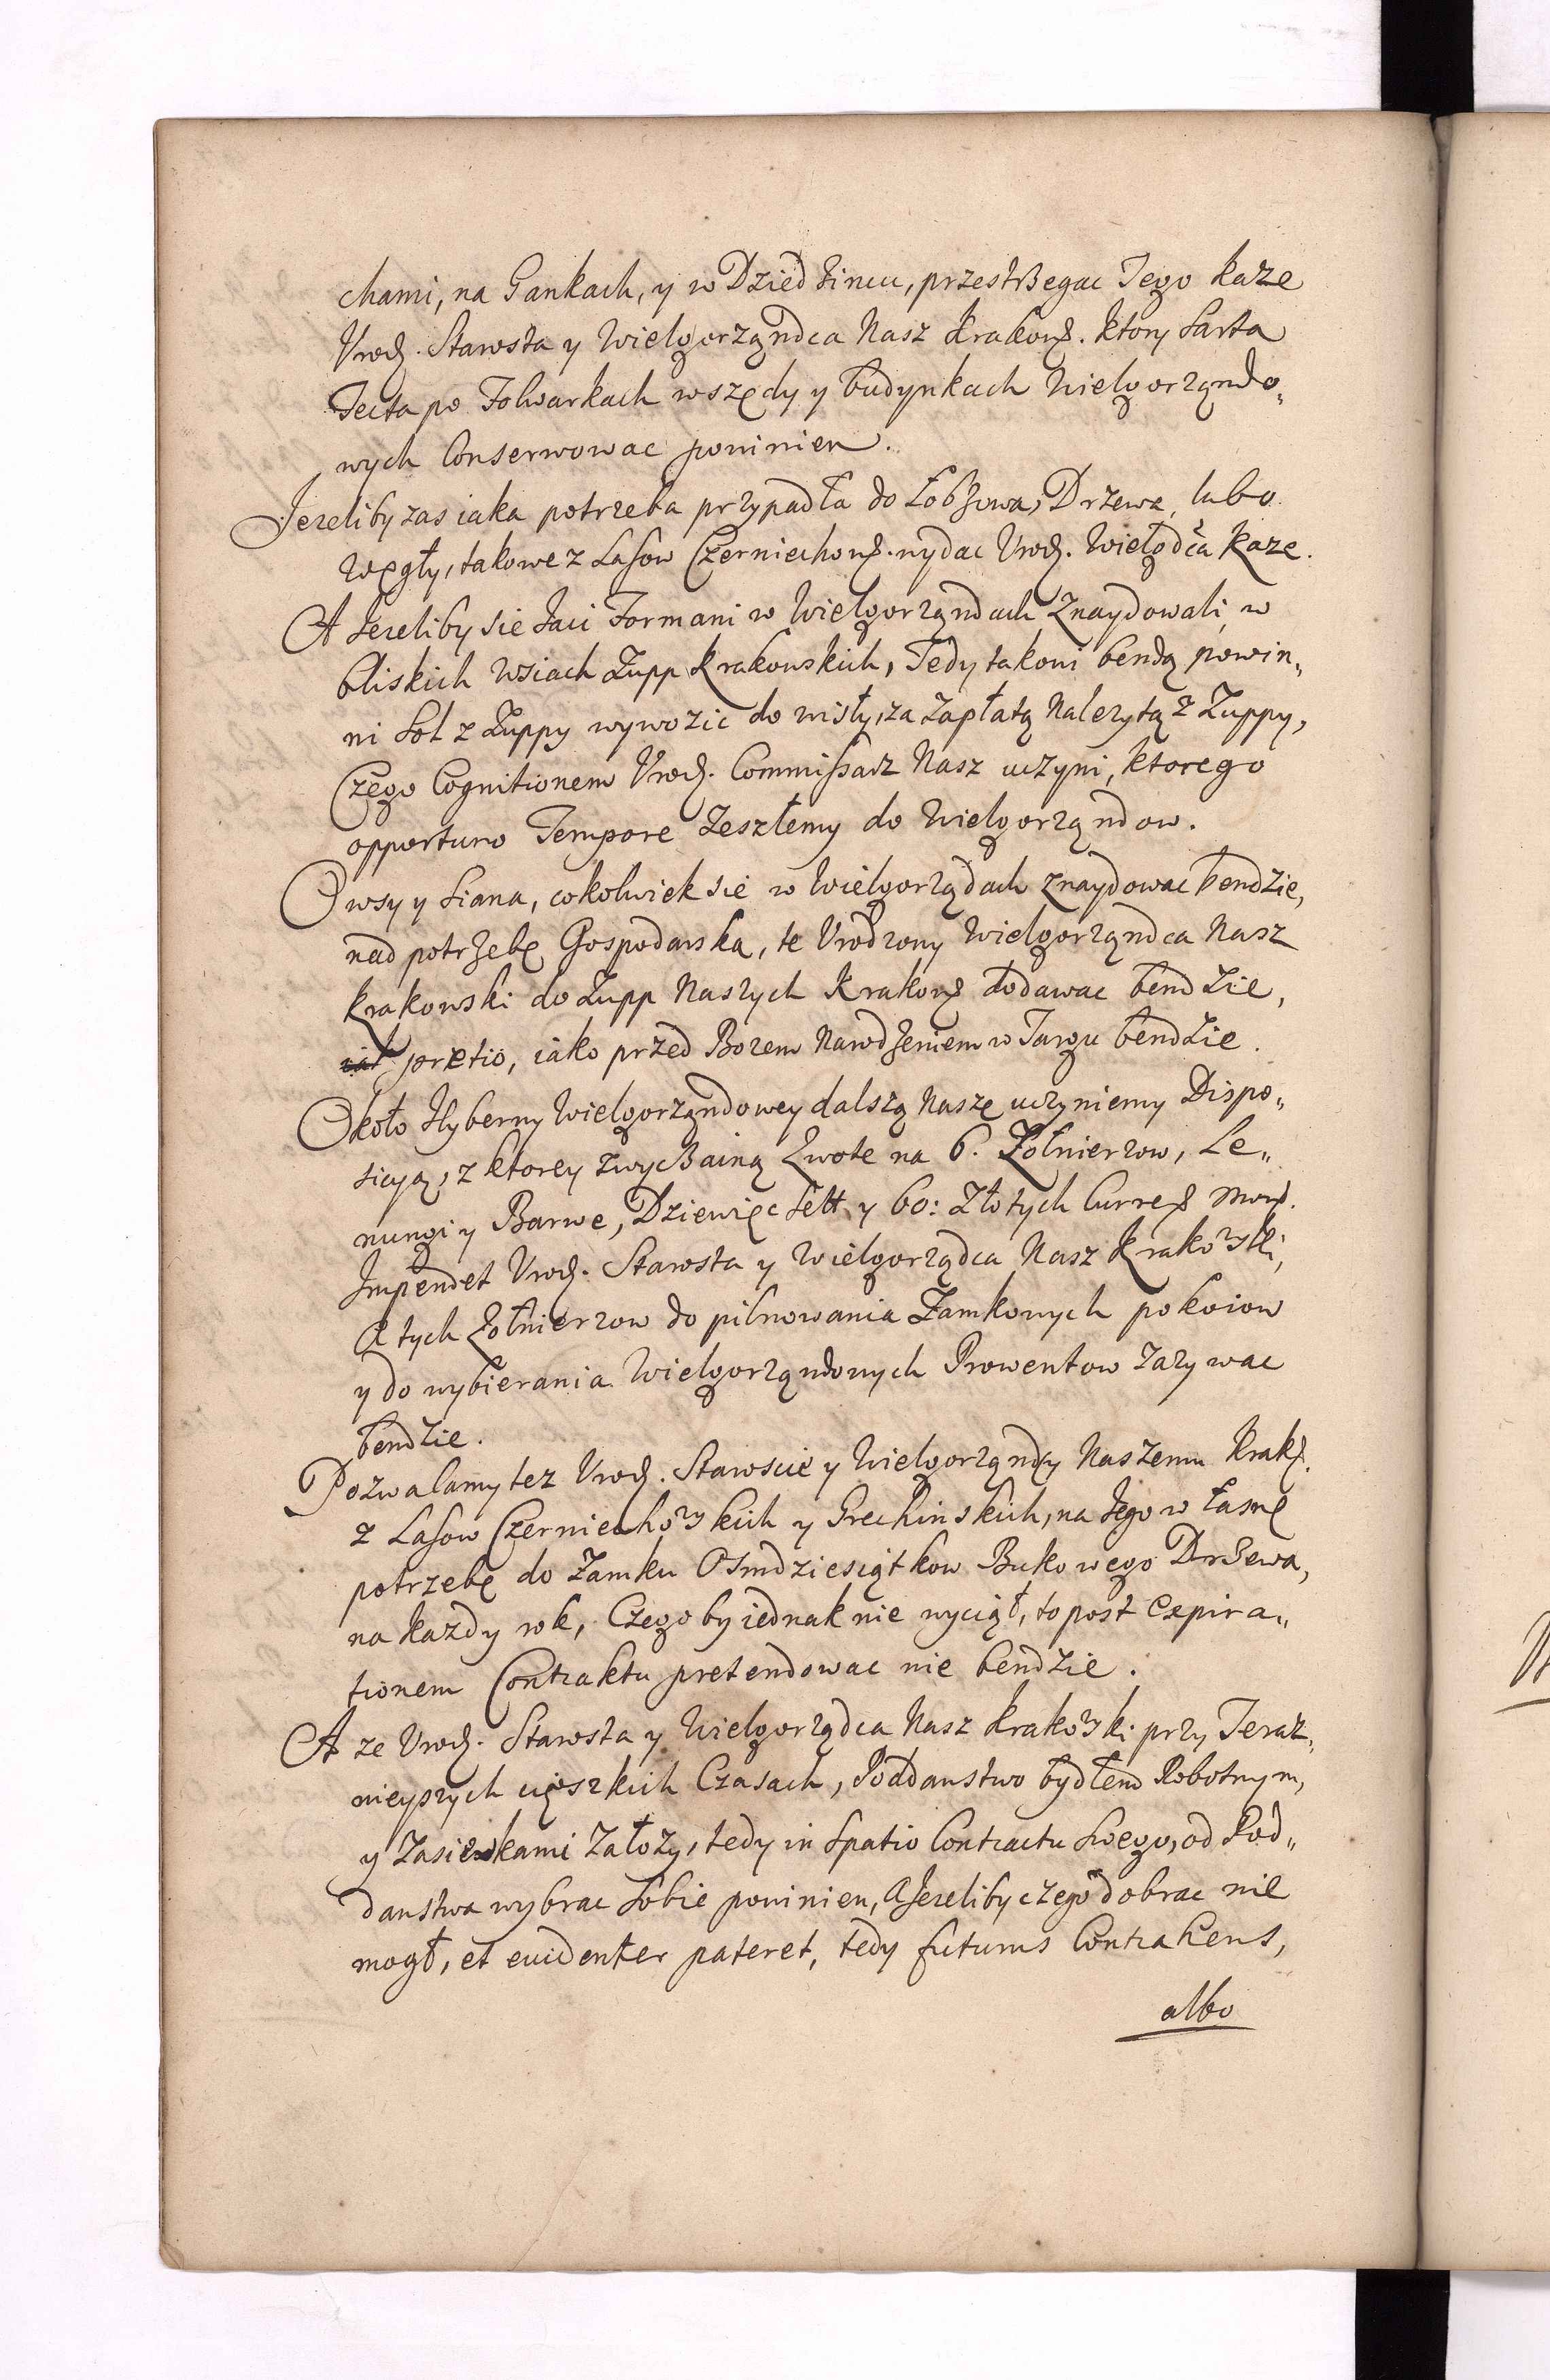 chami, na Gankach, y w Dziedzincu, przestrzegac Tego kaze
Urodz. Starosta y Wielgorząndca Nasz Krakows. ktory Sarta
Tecta po Folwarkach wszędy y budynkach Wielgorząndo„
wych Conserwowac powinien.
Jezeliby zas iaka potrzeba przypadła do Łobzowa, Drzewa, lubo
Węgły, takowe z Lasow Czerniechows. wydac Urodz. Wielgdca kaze.
A Jezeliby sie Jaci Formani w Wielgorząndach znaydowali, w
bliskich wsiach Zupp Krakowskich, Tedy takowi bendą powin„
ni Sol z Zuppy wywozic do wisły, za zapłatą Nalezytą z Zuppy,
Czego Cognitionem Urodz. Commissarz Nasz uczyni, ktorego
opportuno Tempore zeszlemy do Wielgorząndow.
Owsy y Siana, cokolwiek sie w Wielgorządach znaydowac bendzie,
nad potrzebę Gospodarską, te Urodzony Wielgorząndca Nasz
krakowski do Zupp Naszych Krakows dodawac bendzie,
pretio, iako przed Bozem Narodzeniem w Targu bendzie.
Około Hyberny Wielgorząndowey dalszą Naszę uczyniemy Dispo„
sicyą, z ktorey zwyczainą kwote na 6. Zołnierzow, Le„
nungi y Barwe, Dziewięc Sett y 60: Złotych Curren mon.
Impendet Urodz. Starosta y Wielgorządca Nasz Krakowski,
A tych Zołnierzow do pilnowania Zamkowych pokoiow
y do wybierania Wielgorząndowych Prowentow zazywac
bendzie.
Pozwalamy tez Urodz. Staroscie y Wielgorząndcy Naszemu Krak.
z Lasow Czerniechowskich y Grechinskich, na Jego własnę
potrzebę do Zamku Osmdziesiąt kow Bukowego Drzewa,
na kazdy rok, Czegoby iednak nie wyciął, to post expira„
tionem Contraktu pretendowac nie bendzie.
A ze Urodz. Starosta y Wielgorządca Nasz krakowski przy Teraz„
nieyszych cięszkich Czasach, Poddanstwo bydłem Robotnym,
y Zasiewkami założy, tedy in Spatio Contractu Swego, od Pod„
danstwa wybrac Sobie powinien, A Jezeliby czego dobrac nie
mogł, et euidenter pateret, tedy futurus Contrahens,
albo